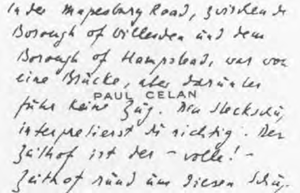 In der Mapesbury Road, zwischen de
Borough of Willesden und dem
Borough of Hampstead, war vor
eine Brücke, aber darunter
PAUL CELAN
fuhr keine Zug. Den
interpretierst Du richtig. Der
Zeithof ist der – volle! –
Zeithof rund um diesen